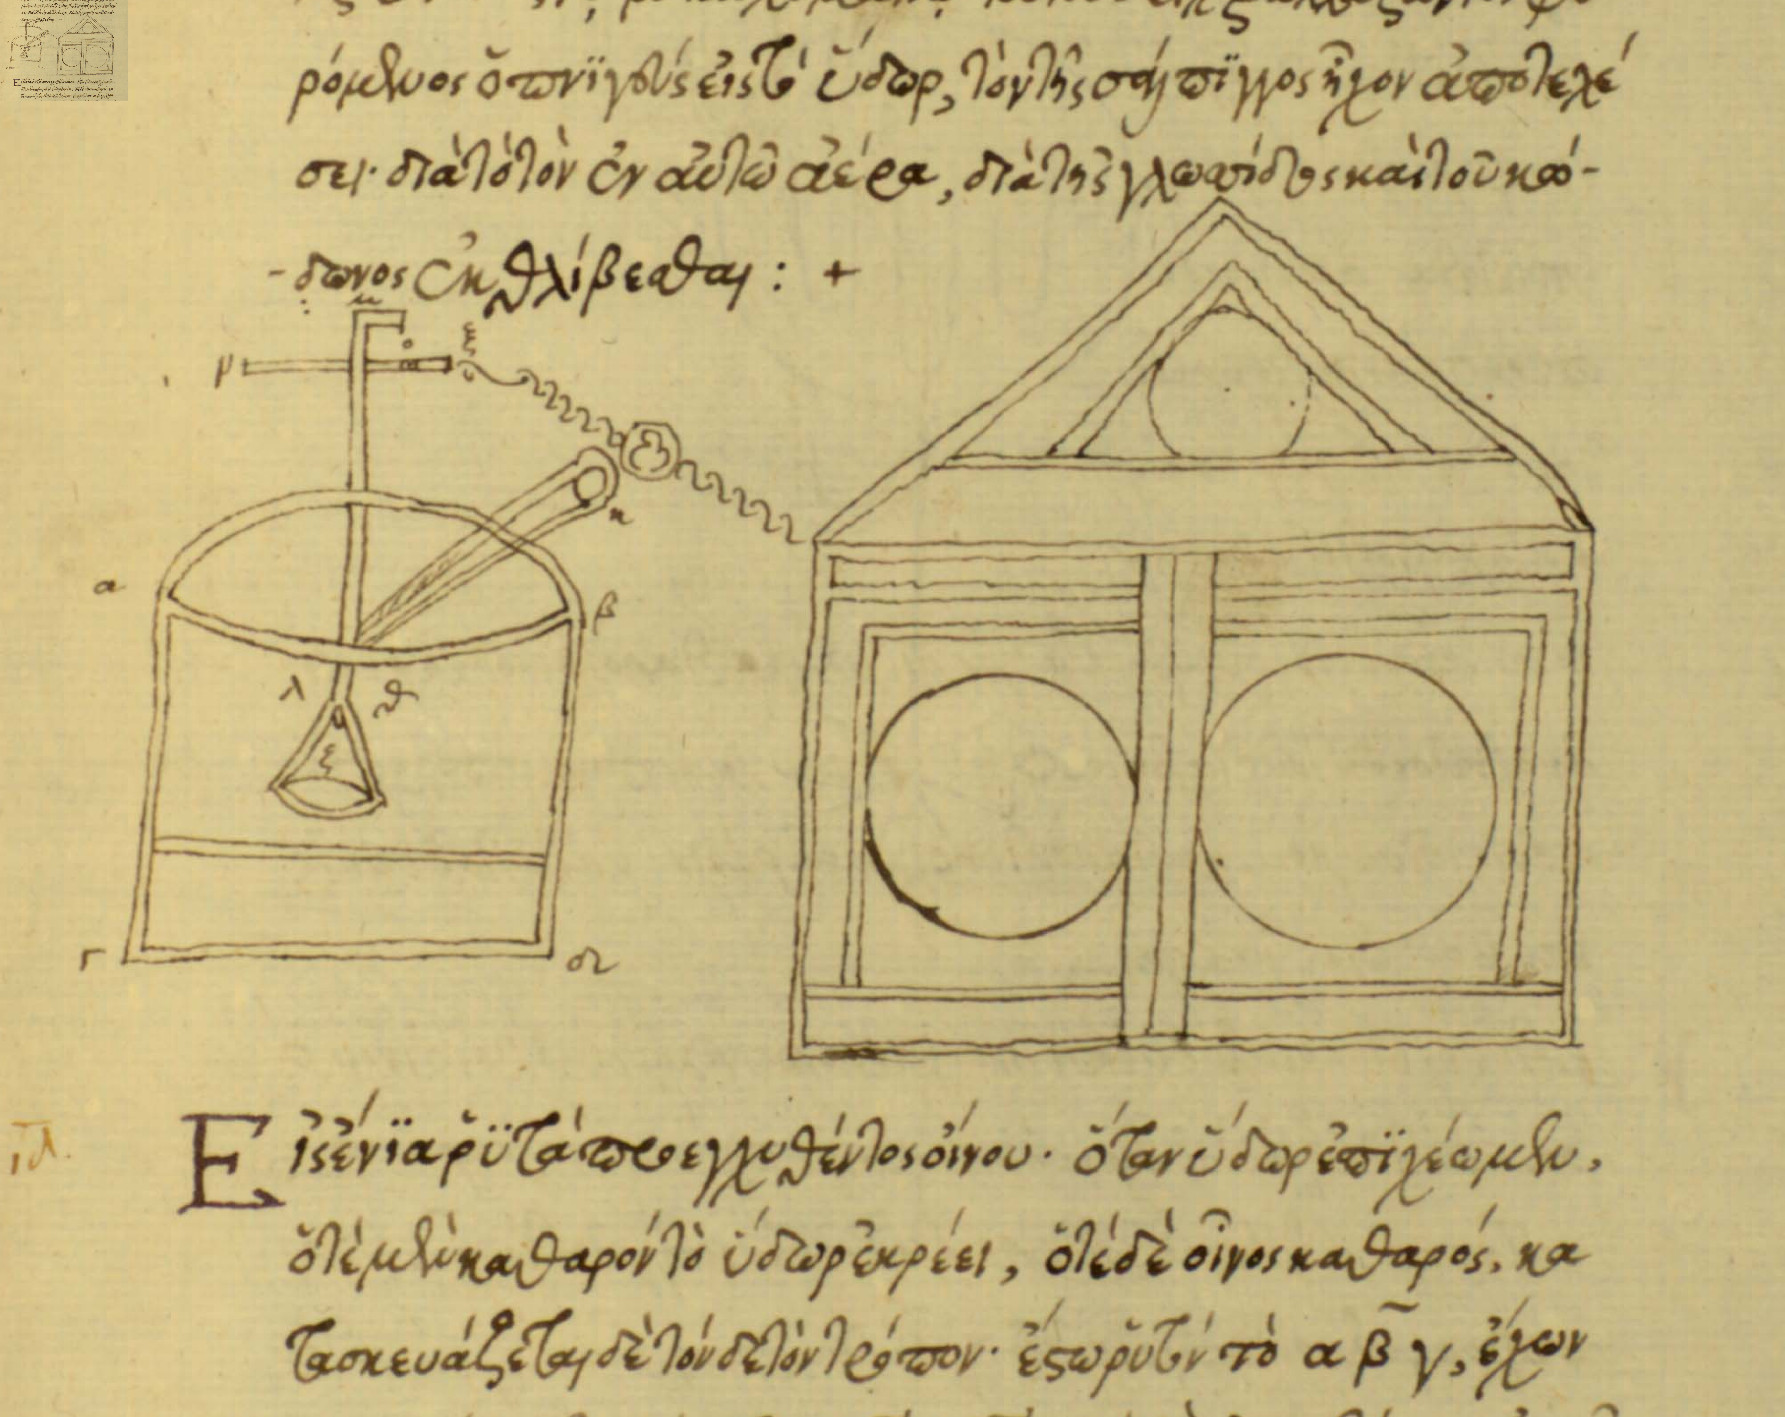 ρόμενος ὁ πνιγεὺς εἰς τὸ ὕδωρ, τὸν τῆς σάλπιγγος ἦχον ἀποτελέ
σει· διὰ τὸ τὸν ἐν αὐτῶ ἀέρα, διὰ τῆς γλωσσίδος καὶ τοῦ κώ-
-δωνος ἐκθλίβεσθαι : +
μ
ρ ο ξ
κ
α β
λ θ
ξ
γ δ
ιδ.
Εἰς ἔνϊα ῥϋτὰ προεγχυθέντος οἴνου· ὅταν ὕδωρ ἐπϊχέωμεν,
ὁτὲ μὲν καθαρὸν τὸ ὕδωρ ἐκρέει, ὁτὲ δὲ οἶνος καθαρός. κα
τασκευάζεται δὲ τόνδε τὸν τρόπον· ἔστω ῥυτὸν τὸ α β γ, ἔχων